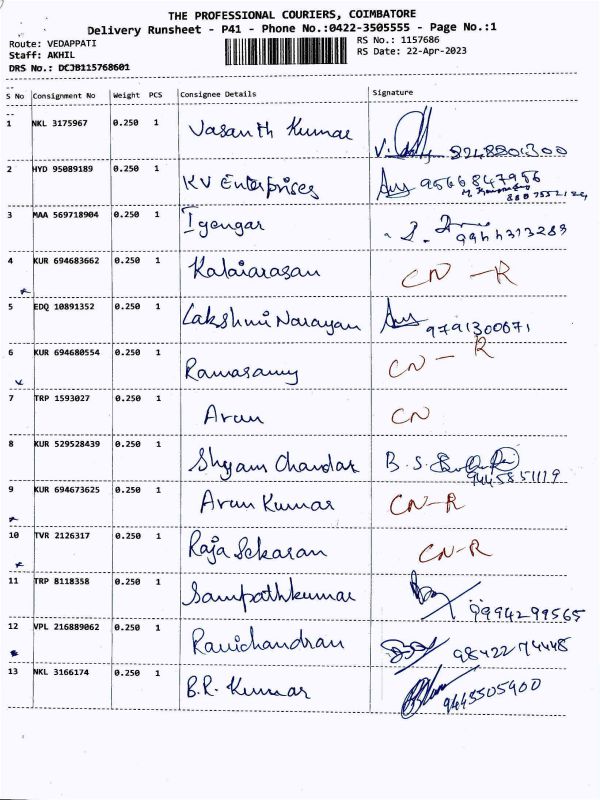 THE PROFESSIONAL COURIERS, COIMBATORE
Delivery Runsheet - P41 - Phone No.:0422-3505555 - Page No.:1
Route: VEDAPPATI RS No.: 1157686
Staff: AKHIL RS Date: 22-Apr-2023
DRS No.: DCJB115768601
S No Consignment No Weight PCS Consignee Details Signature
1 NKL 3175967 0.250 1 Vasanth Kumar 8248801300
2 HYD 95089189 0.250 1 KV Enterprises 9566847956
3 MAA 569718904 0.250 1 Iyengar 9944313289
4 KUR 694683662 0.250 1 Kalaiarasan CN - R
5 EDQ 10891352 0.250 1 Lakshmi Narayan 9791300071
6 KUR 694680554 0.250 1 Ramasamy CN - R
7 TRP 1593027 0.250 1 Arun CN
8 KUR 529528439 0.250 1 Shyam Chandar B. S. 9445851119
9 KUR 694673625 0.250 1 Arun Kumar CN-R
10 TVR 2126317 0.250 1 Raja Sekaran CN-R
11 TRP 8118358 0.250 1 Sampathkumar 9994299565
12 VPL 216889062 0.250 1 Ravichandran 9842274448
13 NKL 3166174 0.250 1 B.R. Kumar 9445505900